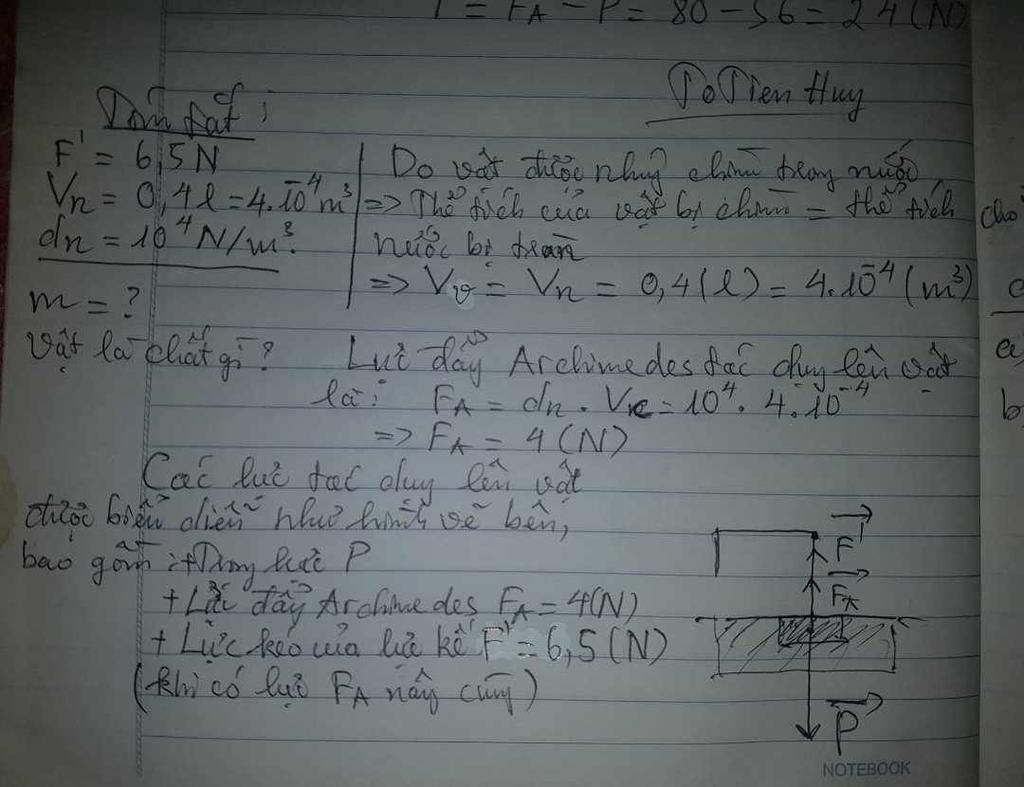 T = FA - P = 80 - 56 = 24 (N)
Tóm tắt:
To Tien Huy
F' = 6,5N
Vn = 0,4l = 4.10⁻⁴m³
dn = 10⁴N/m³.
m = ?
Vật là chất gì?
Do vật được nhúng chìm trong nước
=> Thể tích của vật bị chìm = thể tích
nước bị tràn
=> Vv = Vn = 0,4(l) = 4.10⁻⁴(m³)
Lực đẩy Archimedes tác dụng lên vật
là: FA = dn . Vc = 10⁴. 4.10⁻⁴
=> FA = 4(N)
Các lực tác dụng lên vật
được biểu diễn như hình vẽ bên,
bao gồm: +Trọng lực P
+ Lực đẩy Archimedes FA = 4(N)
+ Lực kéo của lực kế F' = 6,5(N)
(khi có lực FA này cùng)
F'
FA
P
cho
a
b
NOTEBOOK